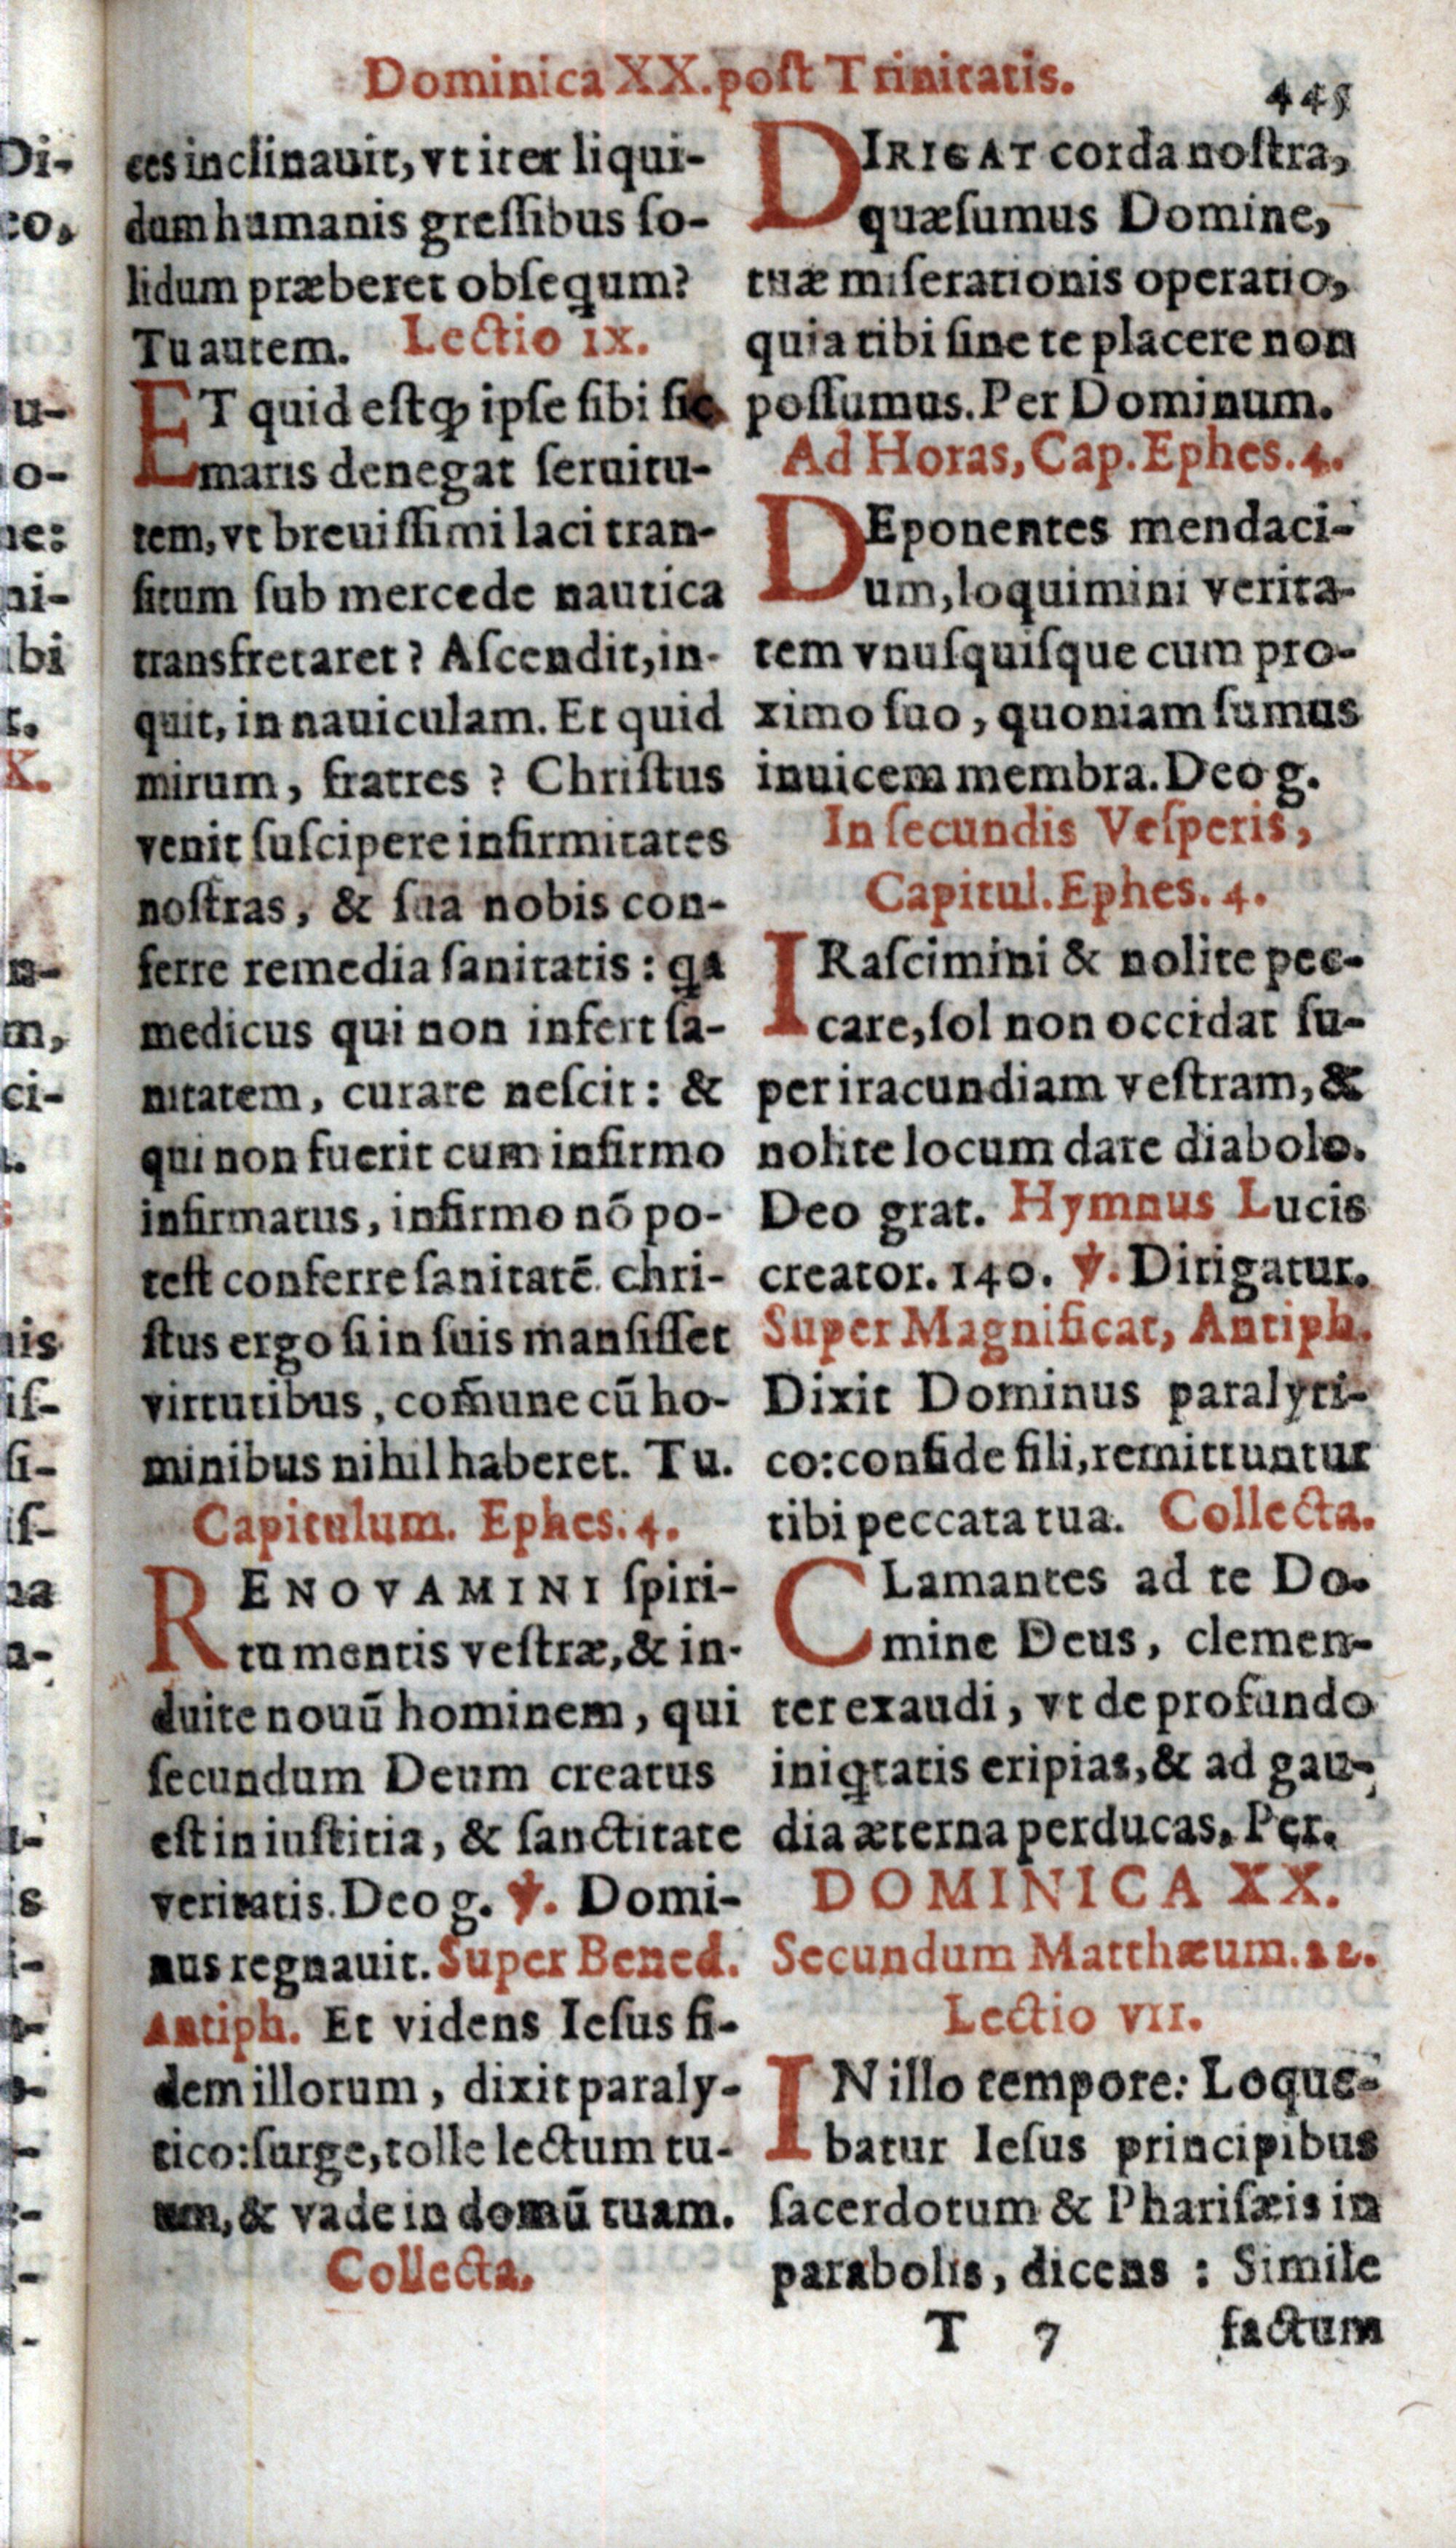 Dominica XX. post Trinitatis.
445
ces inclinauit, vt iter liqui-
dum humanis greſſibus ſo-
lidum præberet obſequm?
Tu autem. Lectio ix.
ET quid eſtꝙ ipſe ſibi ſic
maris denegat ſeruitu-
tem, vt breuiſſimi laci tran-
ſitum ſub mercede nautica
transfretaret? Aſcendit, in-
quit, in nauiculam. Et quid
mirum, fratres? Chriſtus
venit ſuſcipere infirmitates
noſtras, & ſua nobis con-
ferre remedia ſanitatis: qa
medicus qui non infert ſa-
nitatem, curare neſcit: &
qui non fuerit cum infirmo
infirmatus, infirmo nō po-
teſt conferre ſanitatē. chri-
ſtus ergo ſi in ſuis manſiſſet
virtutibus, com̄une cū ho-
minibus nihil haberet. Tu.
Capitulum. Ephes. 4.
RENOVAMINI ſpiri-
tu mentis veſtræ, & in-
duite nouū hominem, qui
ſecundum Deum creatus
eſt in iuſtitia, & ſanctitate
veritatis. Deo g. ℣. Domi-
nus regnauit. Super Bened.
Antiph. Et videns Ieſus fi-
dem illorum, dixit paraly-
tico: ſurge, tolle lectum tu-
um, & vade in domū tuam.
Collecta.
DIRIGAT corda noſtra,
quæſumus Domine,
tuæ miſerationis operatio,
quia tibi ſine te placere non
poſſumus. Per Dominum.
Ad Horas, Cap. Ephes. 4.
DEponentes mendaci-
um, loquimini verita-
tem vnuſquiſque cum pro-
ximo ſuo, quoniam ſumus
inuicem membra. Deo g.
In ſecundis Veſperis,
Capitul. Ephes. 4.
IRaſcimini & nolite pec-
care, ſol non occidat ſu-
per iracundiam veſtram, &
nolite locum dare diabolo.
Deo grat. Hymnus Lucis
creator. 140. ℣. Dirigatur.
Super Magnificat, Antiph.
Dixit Dominus paralyti-
co: confide fili, remittuntur
tibi peccata tua. Collecta.
CLamantes ad te Do-
mine Deus, clemen-
ter exaudi, vt de profundo
iniqtatis eripias, & ad gau-
dia æterna perducas. Per.
DOMINICA XX.
Secundum Matthæum. 22.
Lectio VII.
IN illo tempore: Loque-
batur Ieſus principibus
ſacerdotum & Phariſæis in
parabolis, dicens: Simile
T 7 factum